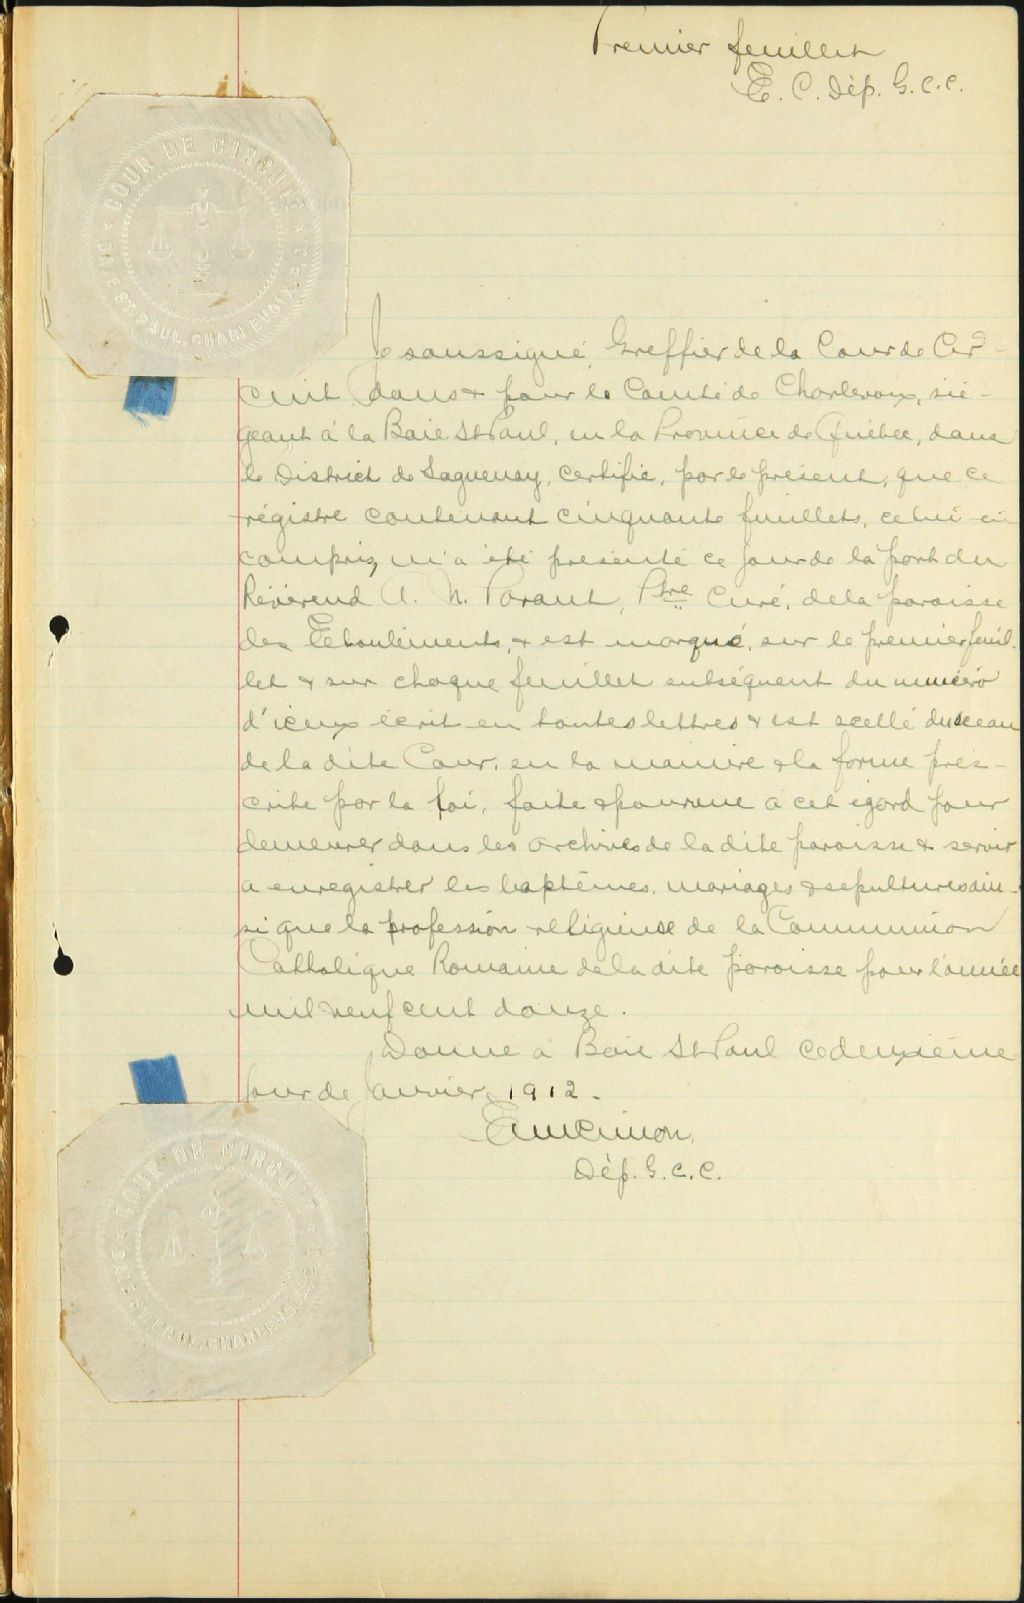 Premier feuillet
E. C. Dép. G. C. C.
COUR DE CIRCUIT
BAIE ST. PAUL, CHARLEVOIX. P.Q.
Je soussigné, Greffier de la Cour de Cir-
cuit, dans & pour le Comté de Charlevoix, sié-
geant à la Baie St Paul, en la Province de Québec, dans
le District de Saguenay, certifie, par le présent, que ce
régistre contenant cinquante feuillets, celui-ci
compris, m'a été présenté ce jour de la part du
Révérend A. N. Parant, Ptre Curé, de la paroisse
des Eboulements, & est marqué, sur le premier feuil-
let & sur chaque feuillet subséquent du numéro
d'iceux écrit en toutes lettres & est scellé du sceau
de la dite Cour, en la manière & la forme pres-
crite par la loi, faite & pourvue à cet égard pour
demeurer dans les archives de la dite paroisse & servir
a enregistrer les baptêmes, mariages & sepultures ain-
si que la profession religieuse de la Communion
Catholique Romaine de la dite paroisse pour l'année
mil neuf cent douze.
Donné à Baie St Paul ce deuxième
jour de Janvier 1912.
Cimon,
Dép. G. C. C.
COUR DE CIRCUIT
BAIE ST. PAUL, CHARLEVOIX. P.Q.